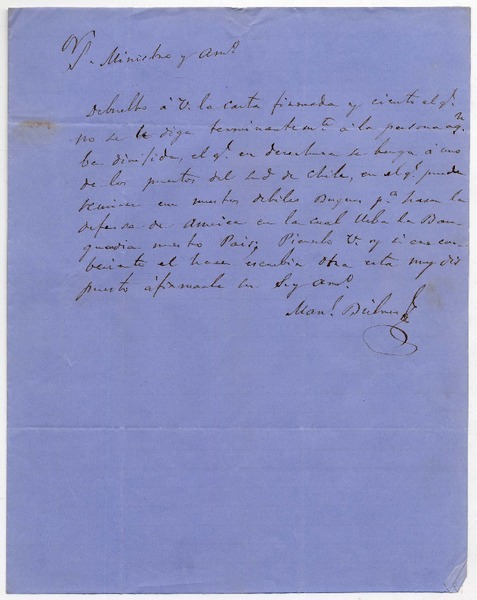 Sr. Ministro y amº
Debuelbo á V. la carta firmada y ciento el qe.
no se le diga terminantemte. á la persona aqn.
ba dirijida, el qe. en derechura se benga á uno
de los puertos del sud de Chile, en el qe. puede
reunirse con nuestros debiles Buques pa. hasar la
defensa de America en la cual lleba la Ban
guardia nuestro Pais; Pienselo V. y si cre con
beniente el haser escribir otra esta muy dis
puesto áfirmarla su Sego. amº
Manl. Búlnes